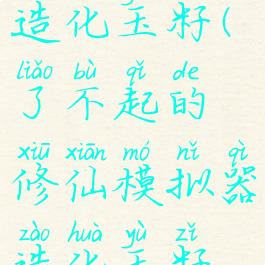 造化玉籽(
liǎo bù qǐ de
了不起的
xiū xiān mó nǐ qì
修仙模拟器
zào huà yù zǐ
造化玉籽